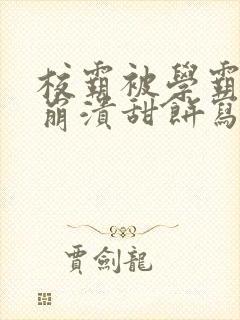 校霸被學霸
崩潰甜餅寫
賈劍龍